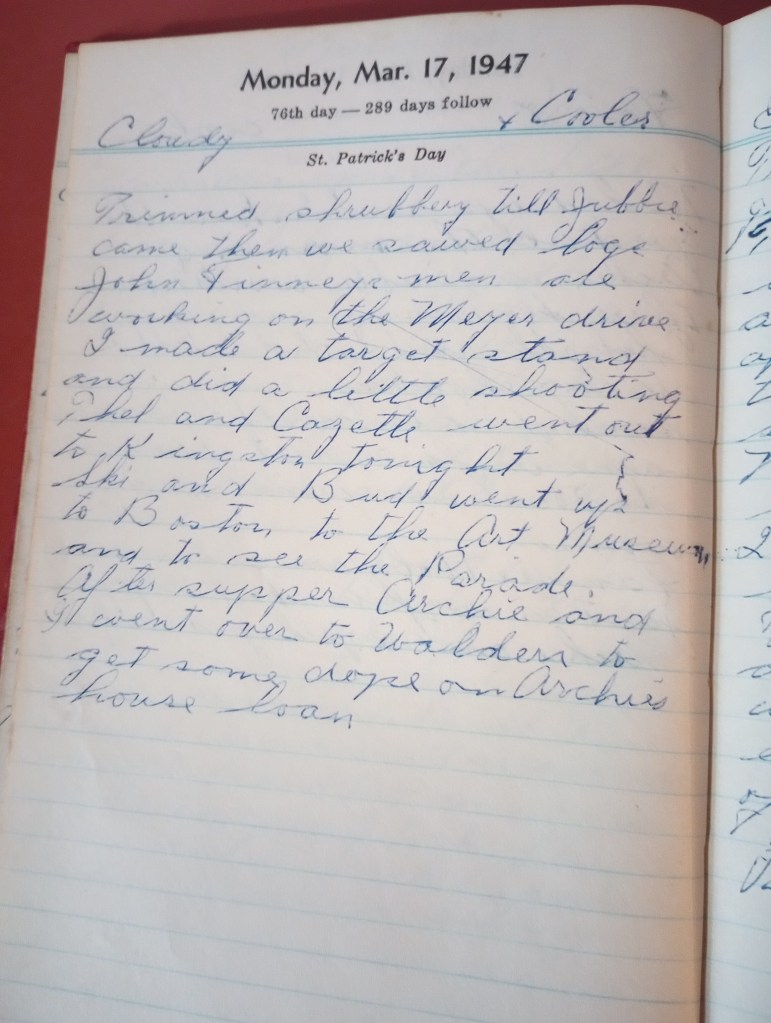 Monday, Mar. 17, 1947
76th day — 289 days follow
Cloudy + Cooler
St. Patrick's Day
Trimmed shrubbery till Jubbie
came then we sawed logs
John Finneys men are
working on the Meyer drive
I made a target stand
and did a little shooting
Thel and Cazette went out
to Kingston tonight
Ski and Bud went up
to Boston to the Art Museum
and to see the Parade.
After supper Archie and
I went over to Walden to
get some dope on Archies
house loan